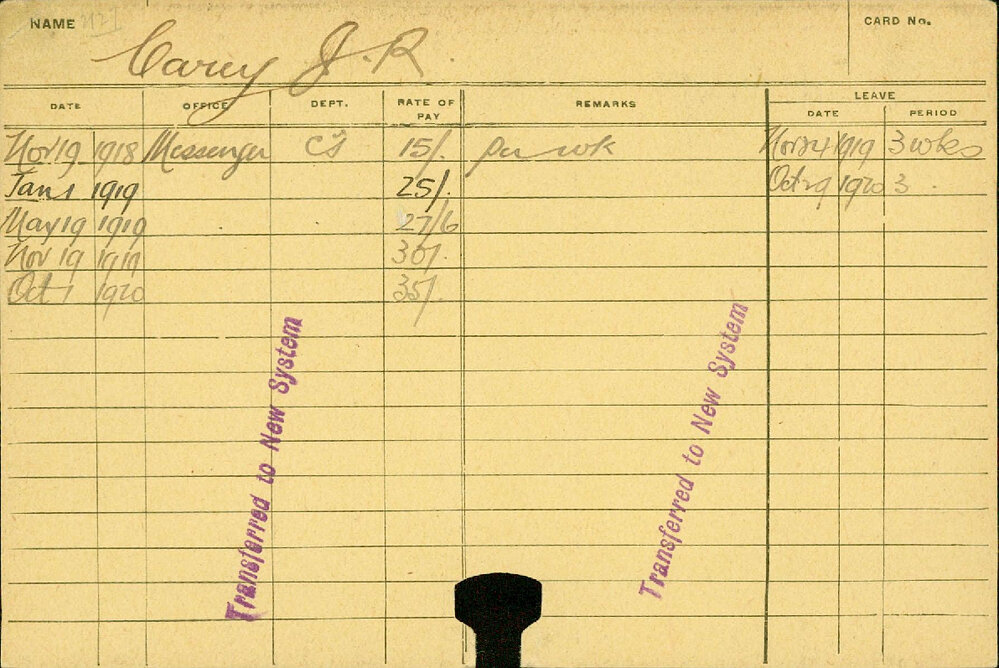 NAME
CARD No.
Carey J. R.
DATE OFFICE DEPT. RATE OF PAY REMARKS LEAVE
DATE PERIOD
Nov 19 1918 Messenger CS 15/. per wk Nov 24 1919 3 wks
Jan 1 1919 25/. Oct 29 1920 3
May 19 1919 27/6
Nov 19 1919 30/.
Oct 1 1920 35/.
Transferred to New System
Transferred to New System